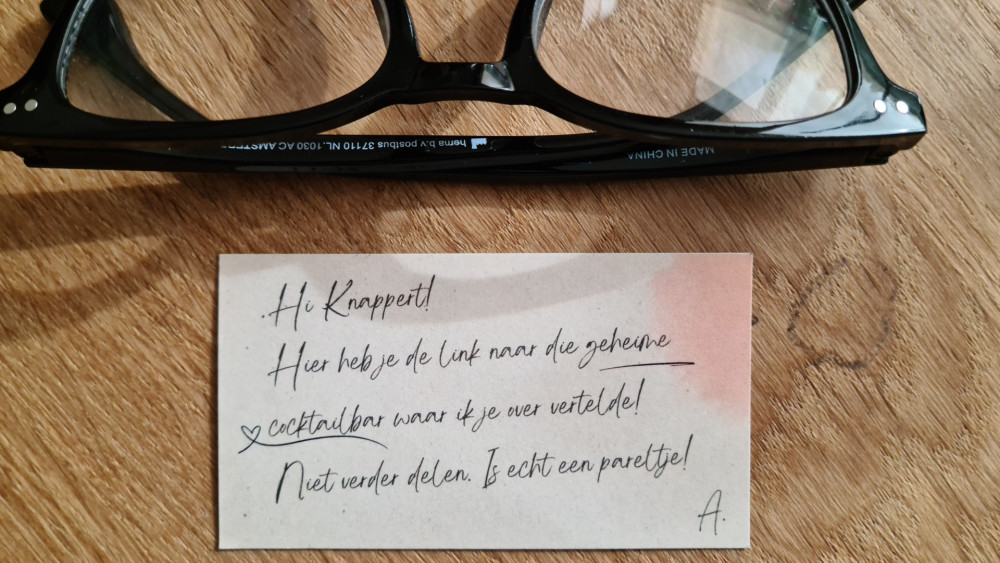 hema b.v. postbus 37110 NL. 1030 AC AMSTER
MADE IN CHINA
Hi Knappert!
Hier heb je de link naar die geheime
cocktailbar waar ik je over vertelde!
Niet verder delen. Is echt een pareltje!
A.